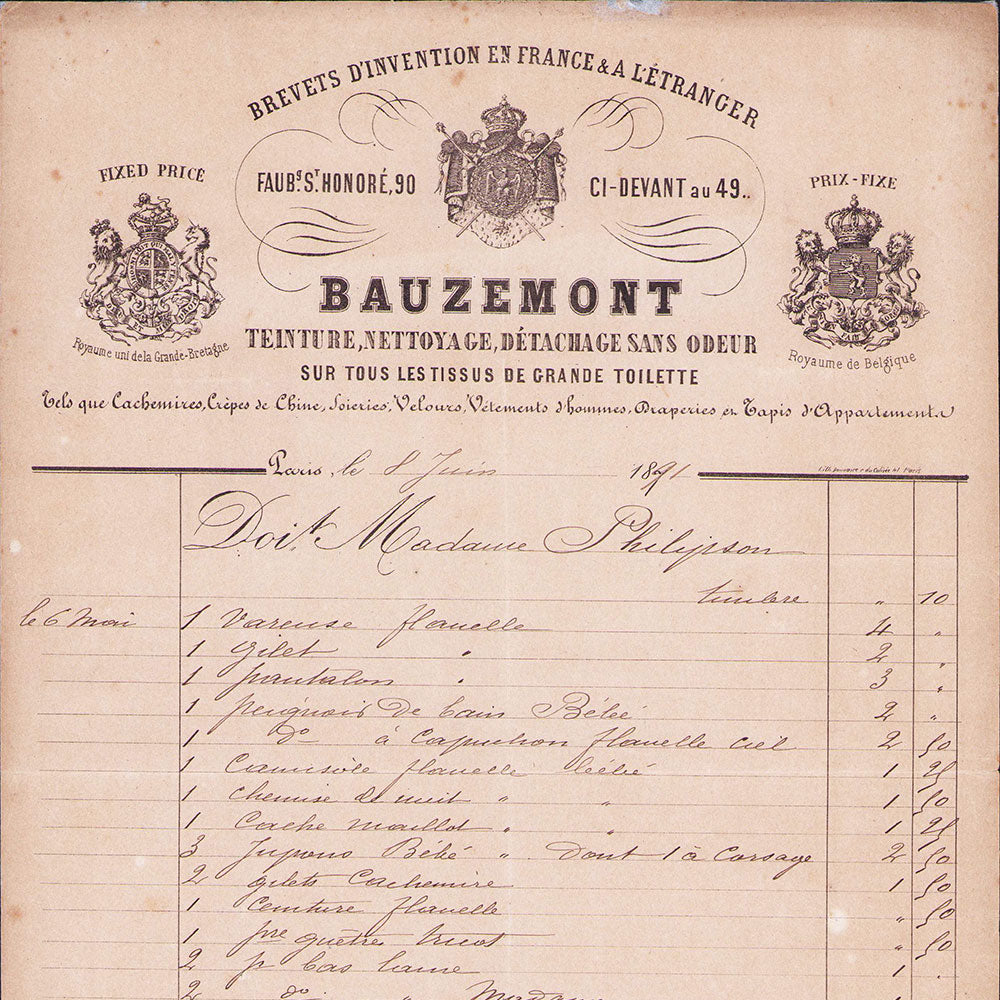 BREVETS D'INVENTION EN FRANCE & A L'ÉTRANGER
FIXED PRICE
FAUBG ST HONORÉ, 90
CI-DEVANT au 49..
PRIX-FIXE
BAUZEMONT
Royaume uni de la Grande-Bretagne
TEINTURE, NETTOYAGE, DÉTACHAGE SANS ODEUR
Royaume de Belgique
SUR TOUS LES TISSUS DE GRANDE TOILETTE
Tels que Cachemires, Crêpes de Chine, Soieries, Velours, Vêtements d'hommes, Draperies et Tapis d'Appartements
Paris, le 8 Juin 1891
Doit Madame Philipson
timbre " 10
le 6 Mai 1 Vareuse flanelle 4 "
1 gilet " 2 "
1 pantalon " 3 "
1 peignoir de bain Bébé 2 "
1 do à capuchon flanelle ciel 2 50
1 Camisole flanelle bébé 1 25
1 chemise de nuit " " 1 50
1 Cache maillot " " 1 25
3 Jupons Bébé " Dont 1 à Corsage 2 50
2 gilets Cachemire 1 50
1 Ceinture flanelle " 50
1 pre guêtres tricot " 50
2 p bas laine 1 .
2 do "